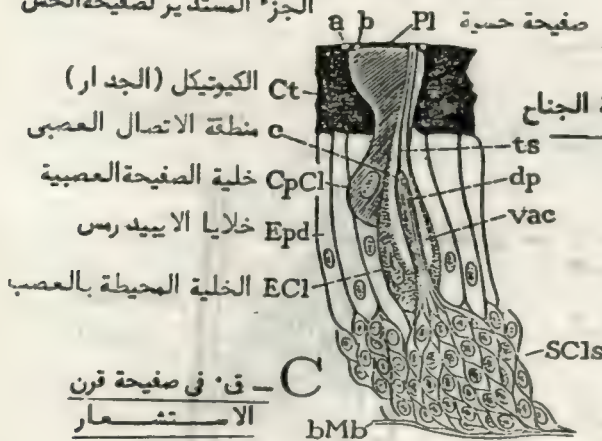 الجزء المستدير لصفيحة الحس
a b Pl صفيحة حسية
Ct الكيوتيكل (الجدار)
ة الجناح
c منطقة الاتصال العصبى
ts
CpCl خلية الصفيحة العصبية
dp
Epd خلايا الايبيدرمس
vac
ECl الخلية المحيطة بالعصب
SCls
C – ق٠ فى صفيحة قرن
الاستشعار
bMb